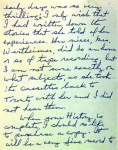 early days was so very
thrilling; I only wish that
I had written down the
stories that she told of her
experiences. Her niece, Mrs.
did do an hour
or so of tape recording, but
I am not sure exactly on
what subjects, as she took
the cassettes back to
with her and I did
not hear them.
When your history is
completed, I should like to
purchase a copy. It
will be a very fine record to